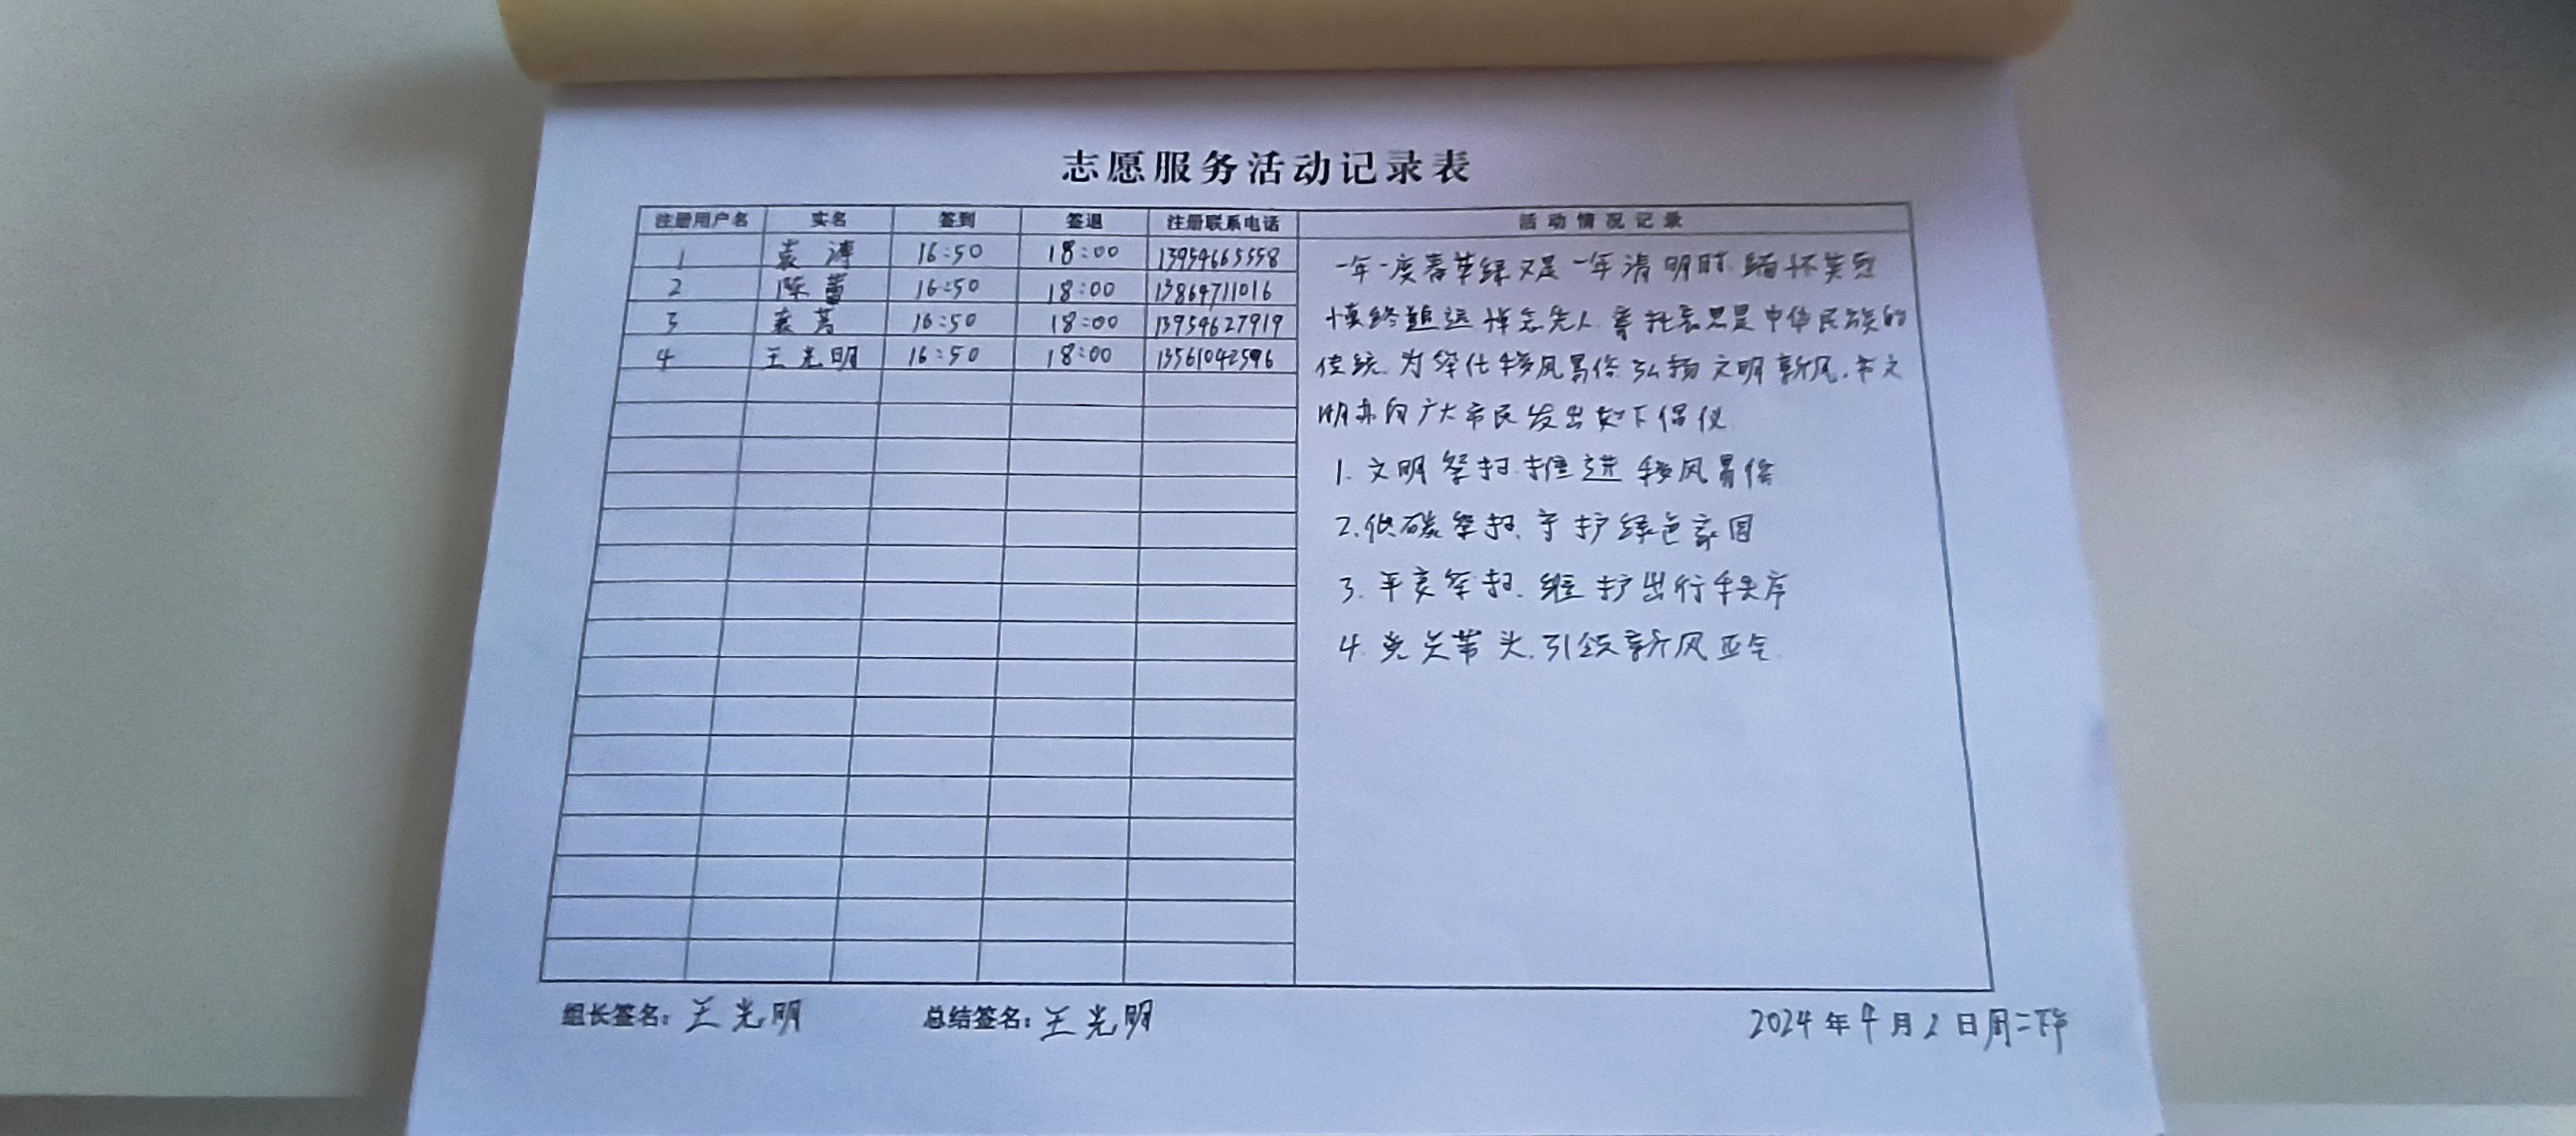 志愿服务活动记录表
注册用户名 实名 签到 签退 注册联系电话 活动情况记录
1 袁涛 16:50 18:00 13954665558
2 陈蕾 16:50 18:00 13864711016
3 袁 16:50 18:00 13954627919
4 王光明 16:50 18:00 13561042596
一年一度春草绿又是一年清明时.缅怀英烈
慎终追远悼念先人.寄托哀思是中华民族的
传统.为 移风易俗.弘扬文明新风.市文
明办向广大市民发出如下倡仪.
1.文明祭扫.推进移风易俗
2.低碳祭扫.守护绿色家园
3.平安祭扫.维护出行秩序
4.党员带头.引领新风正气.
组长签名：王光明 总结签名：王光明 2024年4月2日周二下午